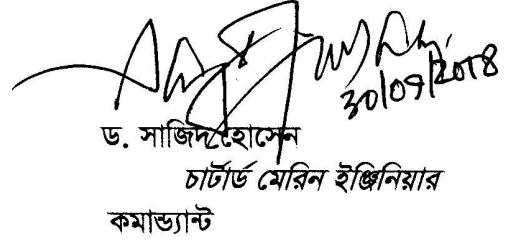 30/09/2018
ড. সাজিদ হোসেন
চার্টার্ড মেরিন ইঞ্জিনিয়ার
কমান্ড্যান্ট